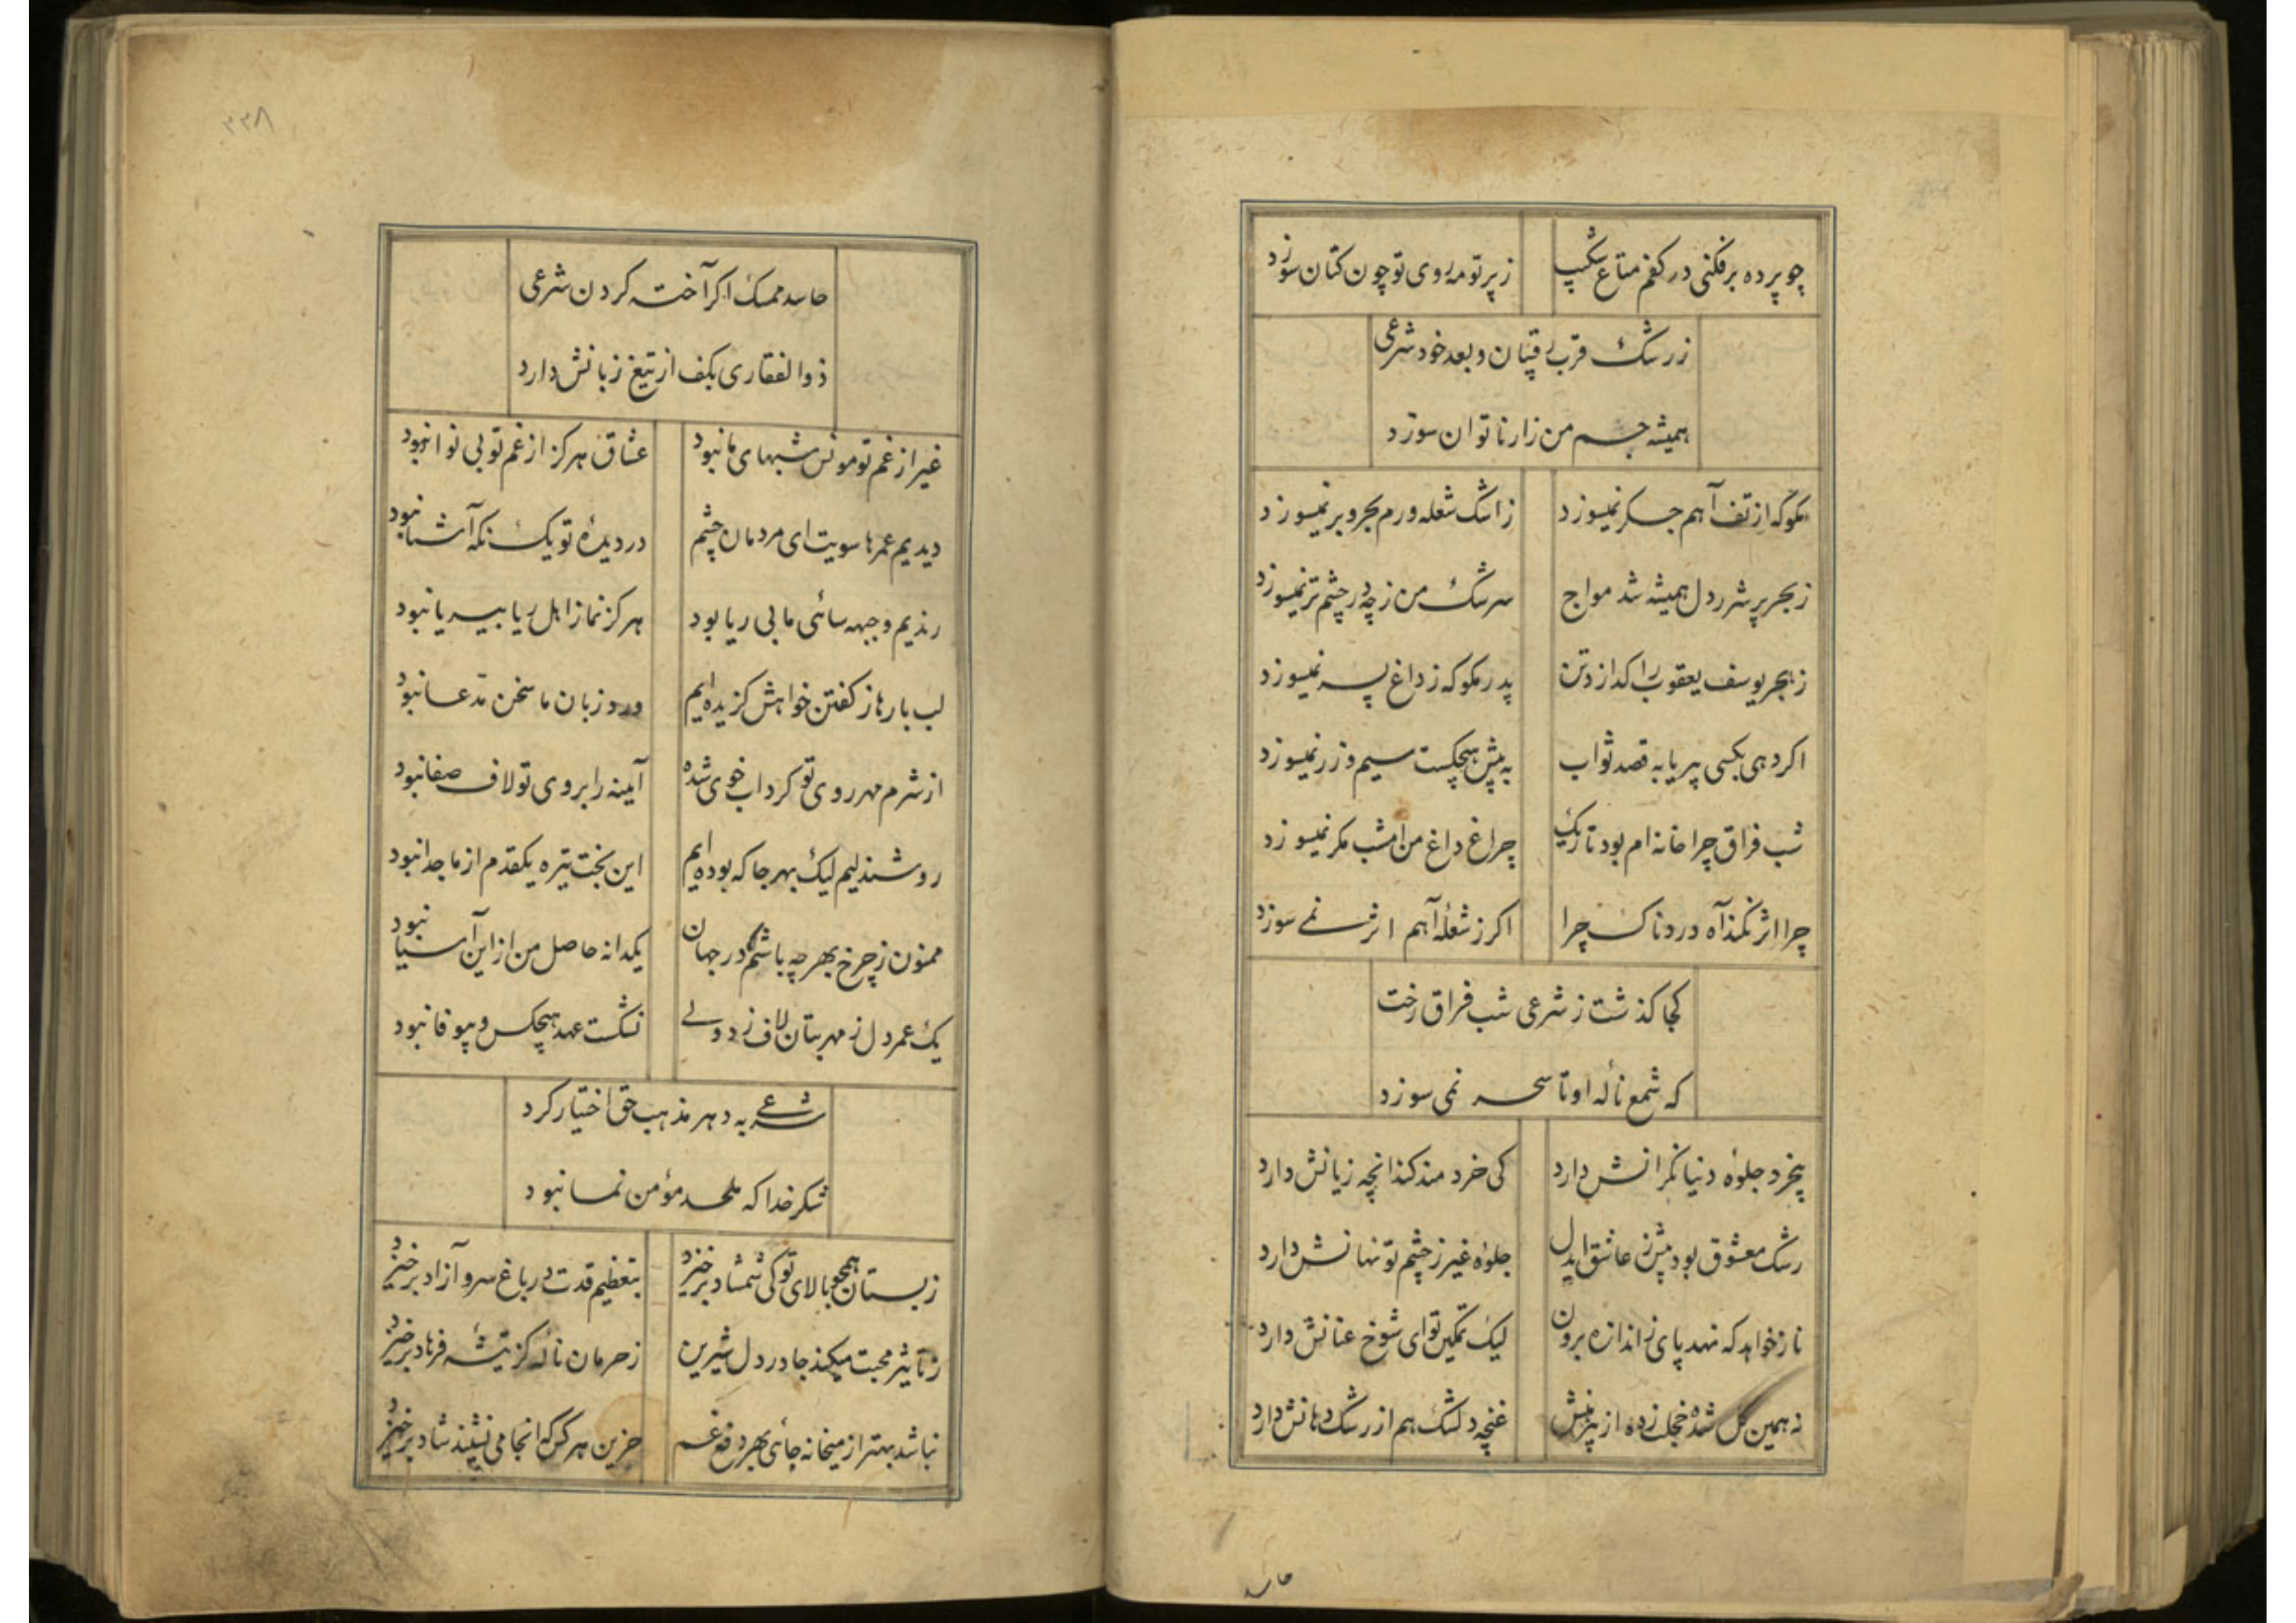 چو پرده برفکنی در کفم متاع شکیب زپرتو مه روی تو چون کتان سوزد
زرشک قرب رقیبان و بعد خود شرعی
همیشه جسم من زار ناتوان سوزد
مگو که از تف آهم جگر نمیسوزد زاشک شعله ورم بحر و بر نمیسوزد
زبحر پر شرر دل همیشه شد مواج سرشک من زچه در چشم تر نمیسوزد
زهجر یوسف یعقوب را کدازد تن پدر مگو که زداغ پسر نمیسوزد
اکر دهی بکسی بیریا به قصد ثواب به پیش هیچکست سیم و زر نمیسوزد
شب فراق چرا خانه ام بود تاریک چراغ داغ من امشب مکر نمیسوزد
چرا اثر نکند آه دردناک چرا اکر زشعله آهم اثر نمے سوزد
کجا کذشت زشرعی شب فراق رخت
که شمع نالهٔ او تا سحر نمی سوزد
بیخرد جلوهٔ دنیا نکرانش دارد کی خردمند کند انچه زیانش دارد
رشک معشوق بود بیش زعاشق ایدل جلوهٔ غیر زچشم تو نهانش دارد
ناز خواهد که نهد پای زاندازه برون لیک تمکین تو ای شوخ عنانش دارد
نه همین کل شده خجلت زده از پیرهنش غنچهٔ دلتنک هم از رشک دهانش دارد
حاسد
۳۳۸
حاسد ممسک اکر آخته کردن شرعی
ذوالفقاری بکف از تیغ زبانش دارد
غیر از غم تو مونس شبهای ما نبود عشاق هرکز از غم تو بی نوا نبود
دیدیم عمرها سویت ای مردمان چشم در دیدهٔ تو یک نکه آشنا نبود
رندیم و جبهه سائی ما بی ریا بود هرکز نماز اهل ریا بیریا نبود
لب بارها زکفتن خواهش کزیده ایم ورد زبان ما سخن مدّعا نبود
از شرم مهر روی تو کرداب خوی شده آیینه را بروی تو لاف صفا نبود
روشندلیم لیک بهر جا که بوده ایم این بخت تیره یکقدم از ما جدا نبود
ممنون زچرخ بهر چه باشم در جهان یکدانه حاصل من از این آسیا نبود
یک عمر دل زمهر بتان لاف زد ولے نشکست عهد هیچکس و بیوفا نبود
شرعے به دهر مذهب حق اختیار کرد
شکر خدا که ملحد مؤمن نما نبود
زبستان همچو بالای تو کی شمشاد برخیزد بتعظیم قدت در باغ سرو آزاد برخیزد
زتأثیر محبت میکند جا در دل شیرین زحرمان نالهٔ کز تیشهٔ فرهاد برخیزد
نباشد بهتر از میخانه جائی بهر دفع غم حزین هرکس که انجا می نشیند شاد برخیزد